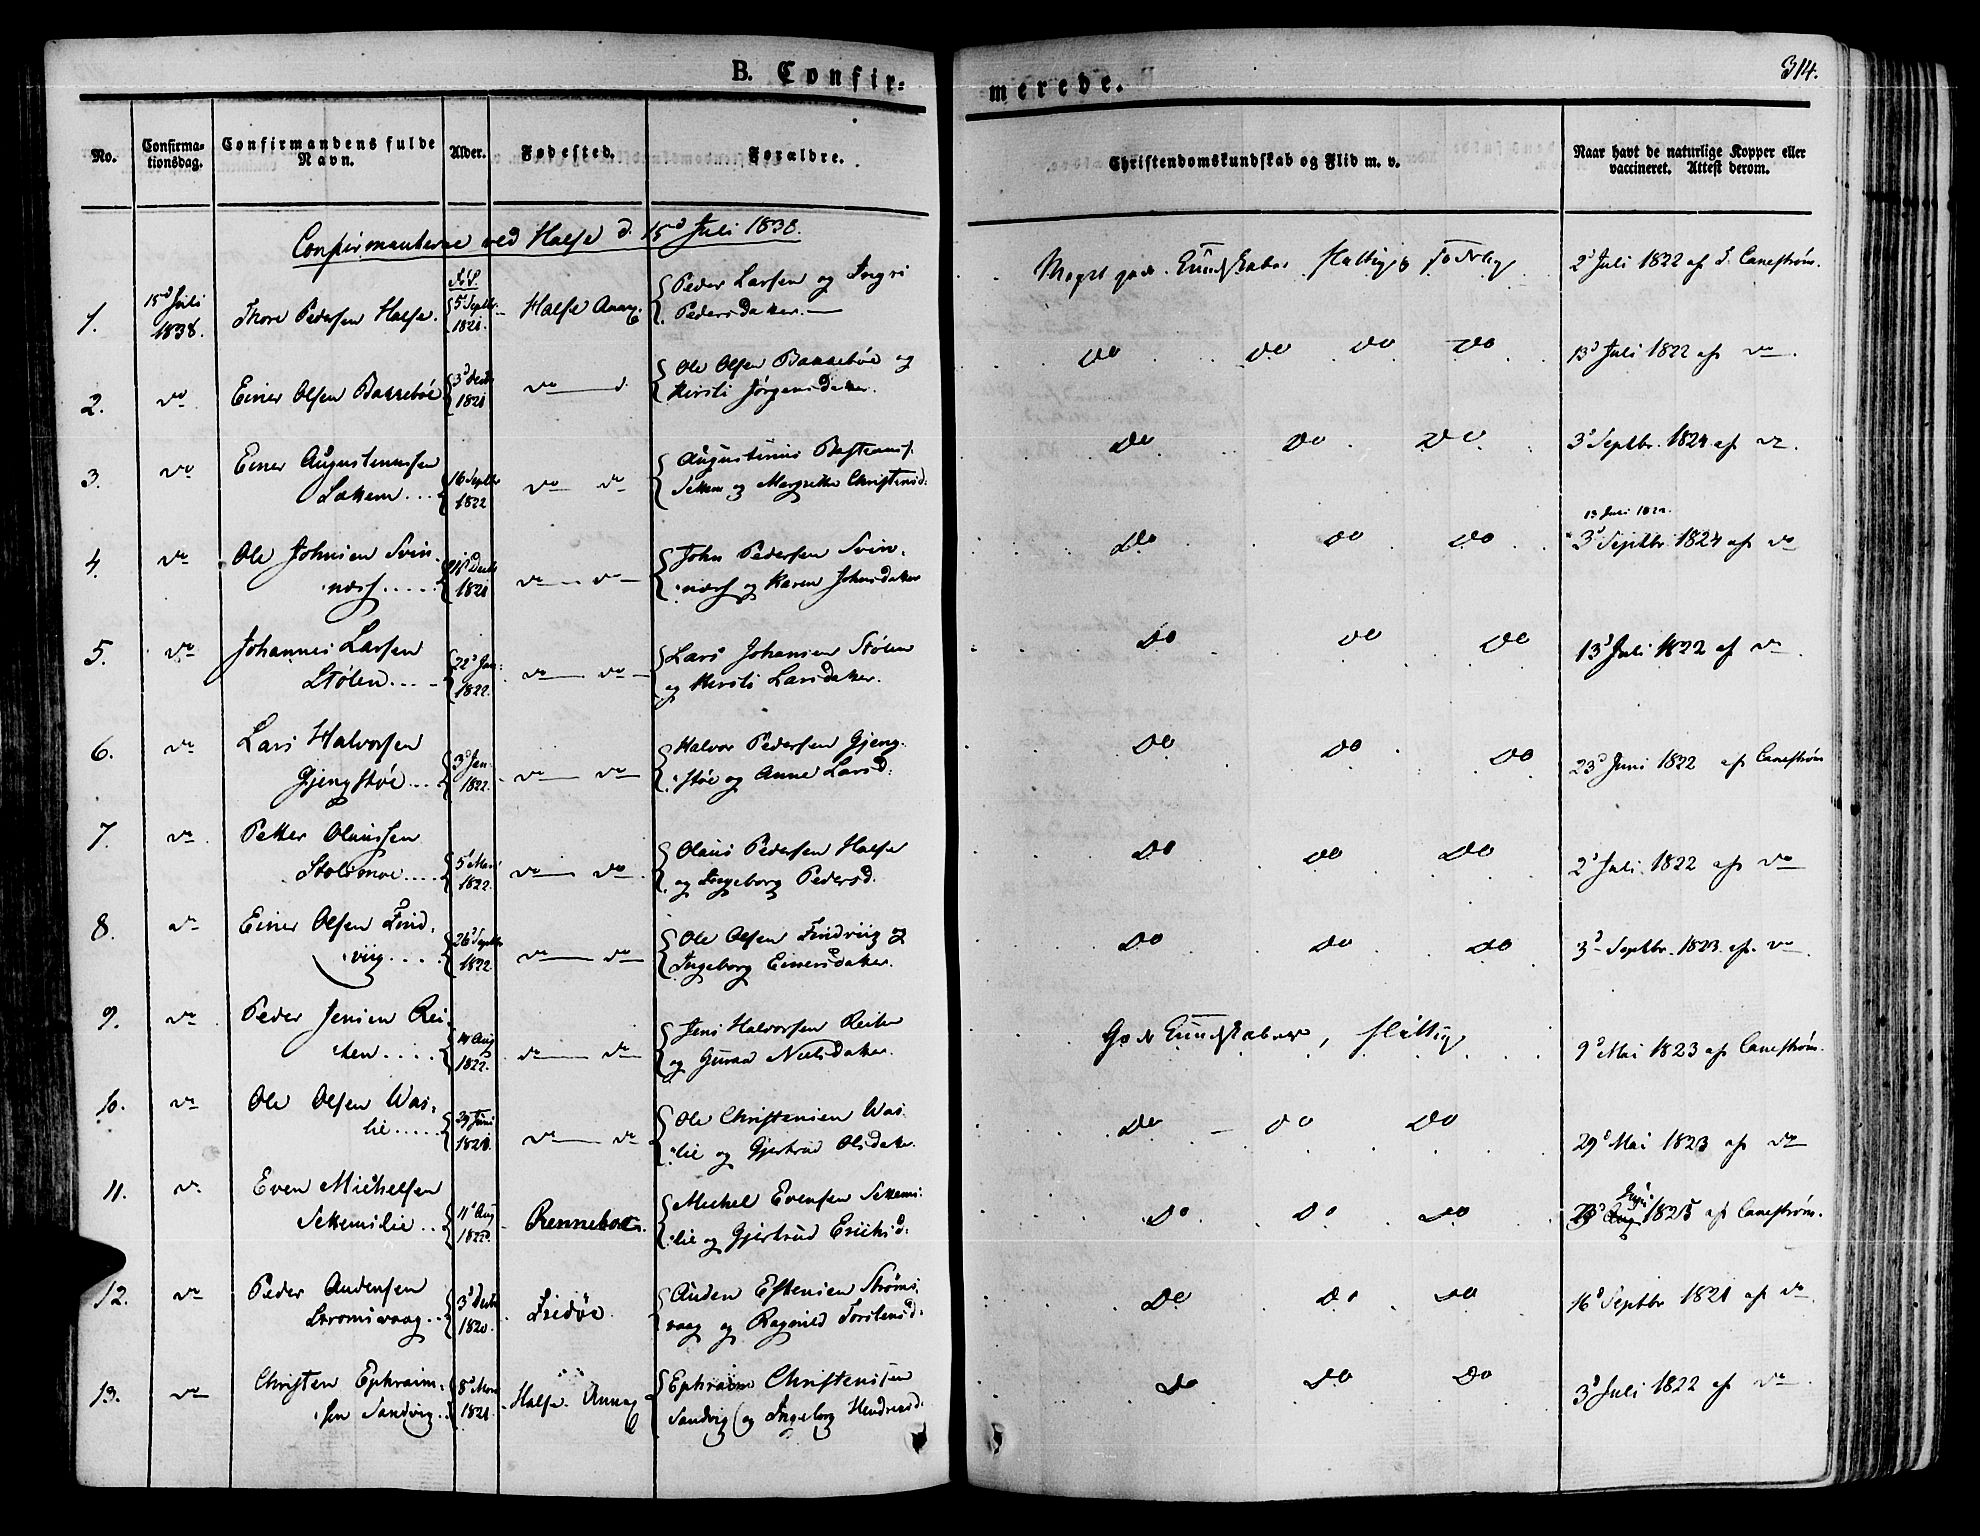 B. Confir=
merede.
314.
No.
Confirma-
tionsdag.
Confirmandens fulde
Navn.
Alder.
Fødested.
Forældre.
Christendomskundskab og Flid m. v.
Naar havt de naturlige Kopper eller
vaccineret. Attest derom.
Confirmanterne ved Halse d. 15d Juli 1838.
1. 15d Juli 1838. Thore Pedersen Halse. 5 Septbr 1821. Halse Annex. Peder Larsen og Ingri
Pedersdatter.
Meget gode Kundskaber flittig 2d Juli 1822 af Canestrøm.
2. do Einer Olsen Bakkebøe 3d 1821 do Ole Olsen Bakkebøe og
Kirsti Jørgensdatter.
do do do do 13d Juli 1822 af do.
3. do Einer Augustinussen
16 Septbr 1822 do do Augustinus
og Margrethe Christensd:
do do do 3d Septbr. 1824 af do
4. do Ole Johnsen Svin-
næss..... 1821 do do John Pedersen Svin-
næss og Karen Johnsdatter
do do do 13 Juli 1822.
3d Septbr. 1824 af do
5. do Johannes Larsen
Stølen.... 22d Jan: 1822. do do Lars Johansen Stølen
og Kirsti Larsdatter.
do do do 13d Juli 1822 af do
6. do Lars Halvorsen
Gjengstøe... 3d Jan: 1822. do do Halvor Pedersen Gjeng-
støe og Anne Larsd:
do do do 23d Juni 1822 af Canestrøm
7. do Petter Olaussen
Stolsmoe.... 5d 1822. do do Olaus Pedersen Halse
og Ingeborg Pedersd.
do do do 2d Juli 1822 af do
8. do Einer Olsen Find-
viig.... 26d Septbr 1822 do do Ole Olsen Findviig og
Ingeborg Einersdatter.
do do do 3d Septbr. 1823 af. do
9. do Peder Jensen Rei-
ten.... Aug 1822. do do Jens Halvorsen Reiten
og Nielsdatter.
Gode Kundskaber, flittig 9d Mai 1823 af Canestrøm.
10. do Ole Olsen Was-
lie..... 1821. do do Ole Christensen Was-
lie og Gjertrud Olsdatter
do do do 29d Mai 1823 af do
11. do Even Michelsen
Settemslie.. 11d Aug 1822. Renneboe. Mickel Evensen Settems-
lie og Gjertrud Ericksd:
do do do 1825 af Canestrøm.
12. do Peder Audensen
Strømsvaag.. 3d 1820. Fredøe. Auden Estensen Strøms-
vaag og Ragnild Torstensd:
do do do 16d Septbr 1821 af do
13. do Christen Ephraim-
sen Sandvig.. 8d 1821. Halse Annex Ephraim Christensen
Sandvig og Ingeborg
do do do 3d Juli 1822 af do